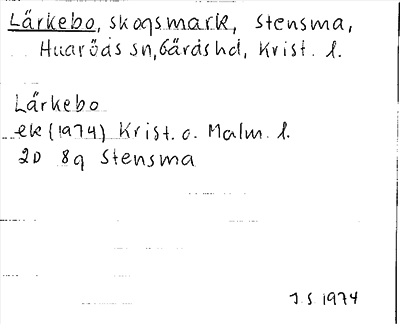 Lärkebo, skogsmark, Stensma,
Huaröds sn, Gärds hd, Krist. l.
Lärkebo
ek (1974) Krist. o. Malm. l.
2D 8g Stensma
J.S 1974